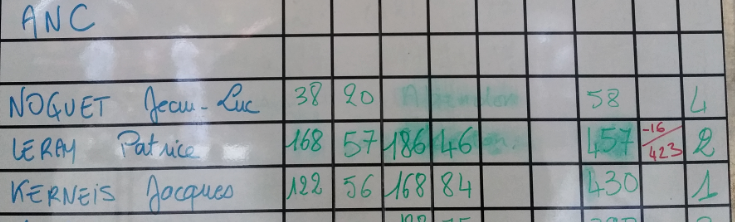 ANC
NOGUET Jean-Luc 38 20 Abandon 58 4
LERAY Patrice 168 57 186 46 457 -16/423 2
KERNEIS Jacques 122 56 168 84 430 1